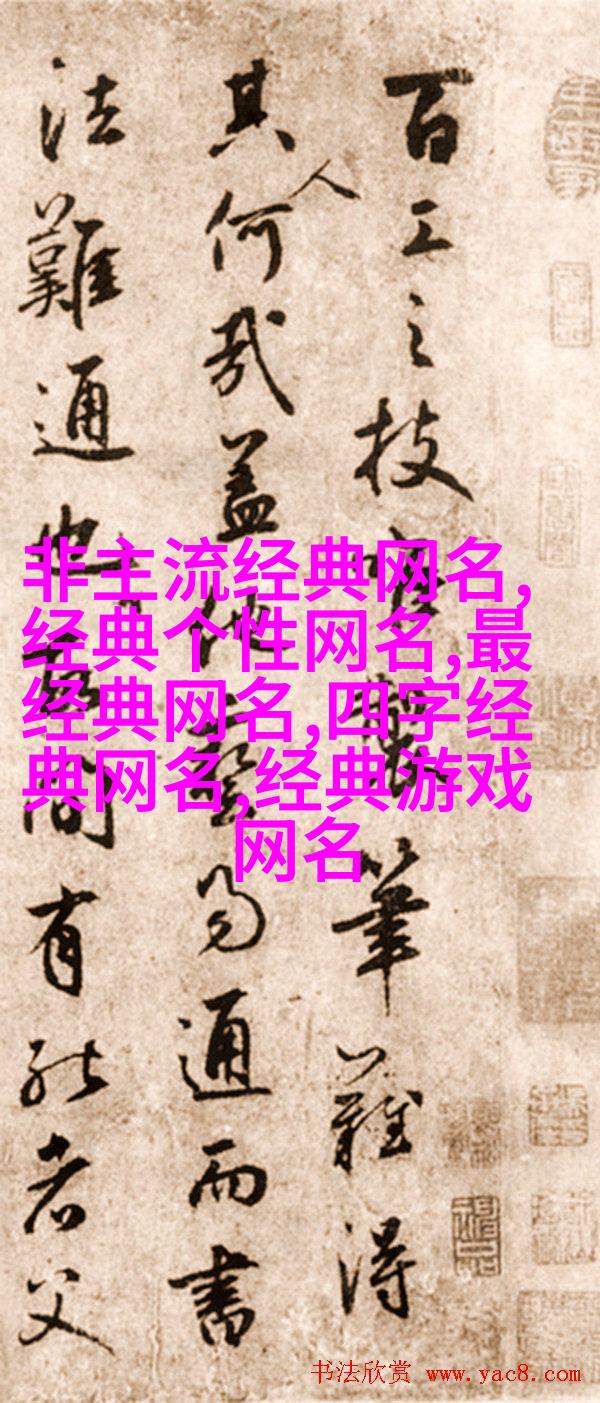 百工之技筆難得
其人何哉蓋他藝易通而書
法難通也間有能者父
非主流经典网名,
经典个性网名,最
经典网名,四字经
典网名,经典游戏
网名
书法欣赏 www.yac8.com